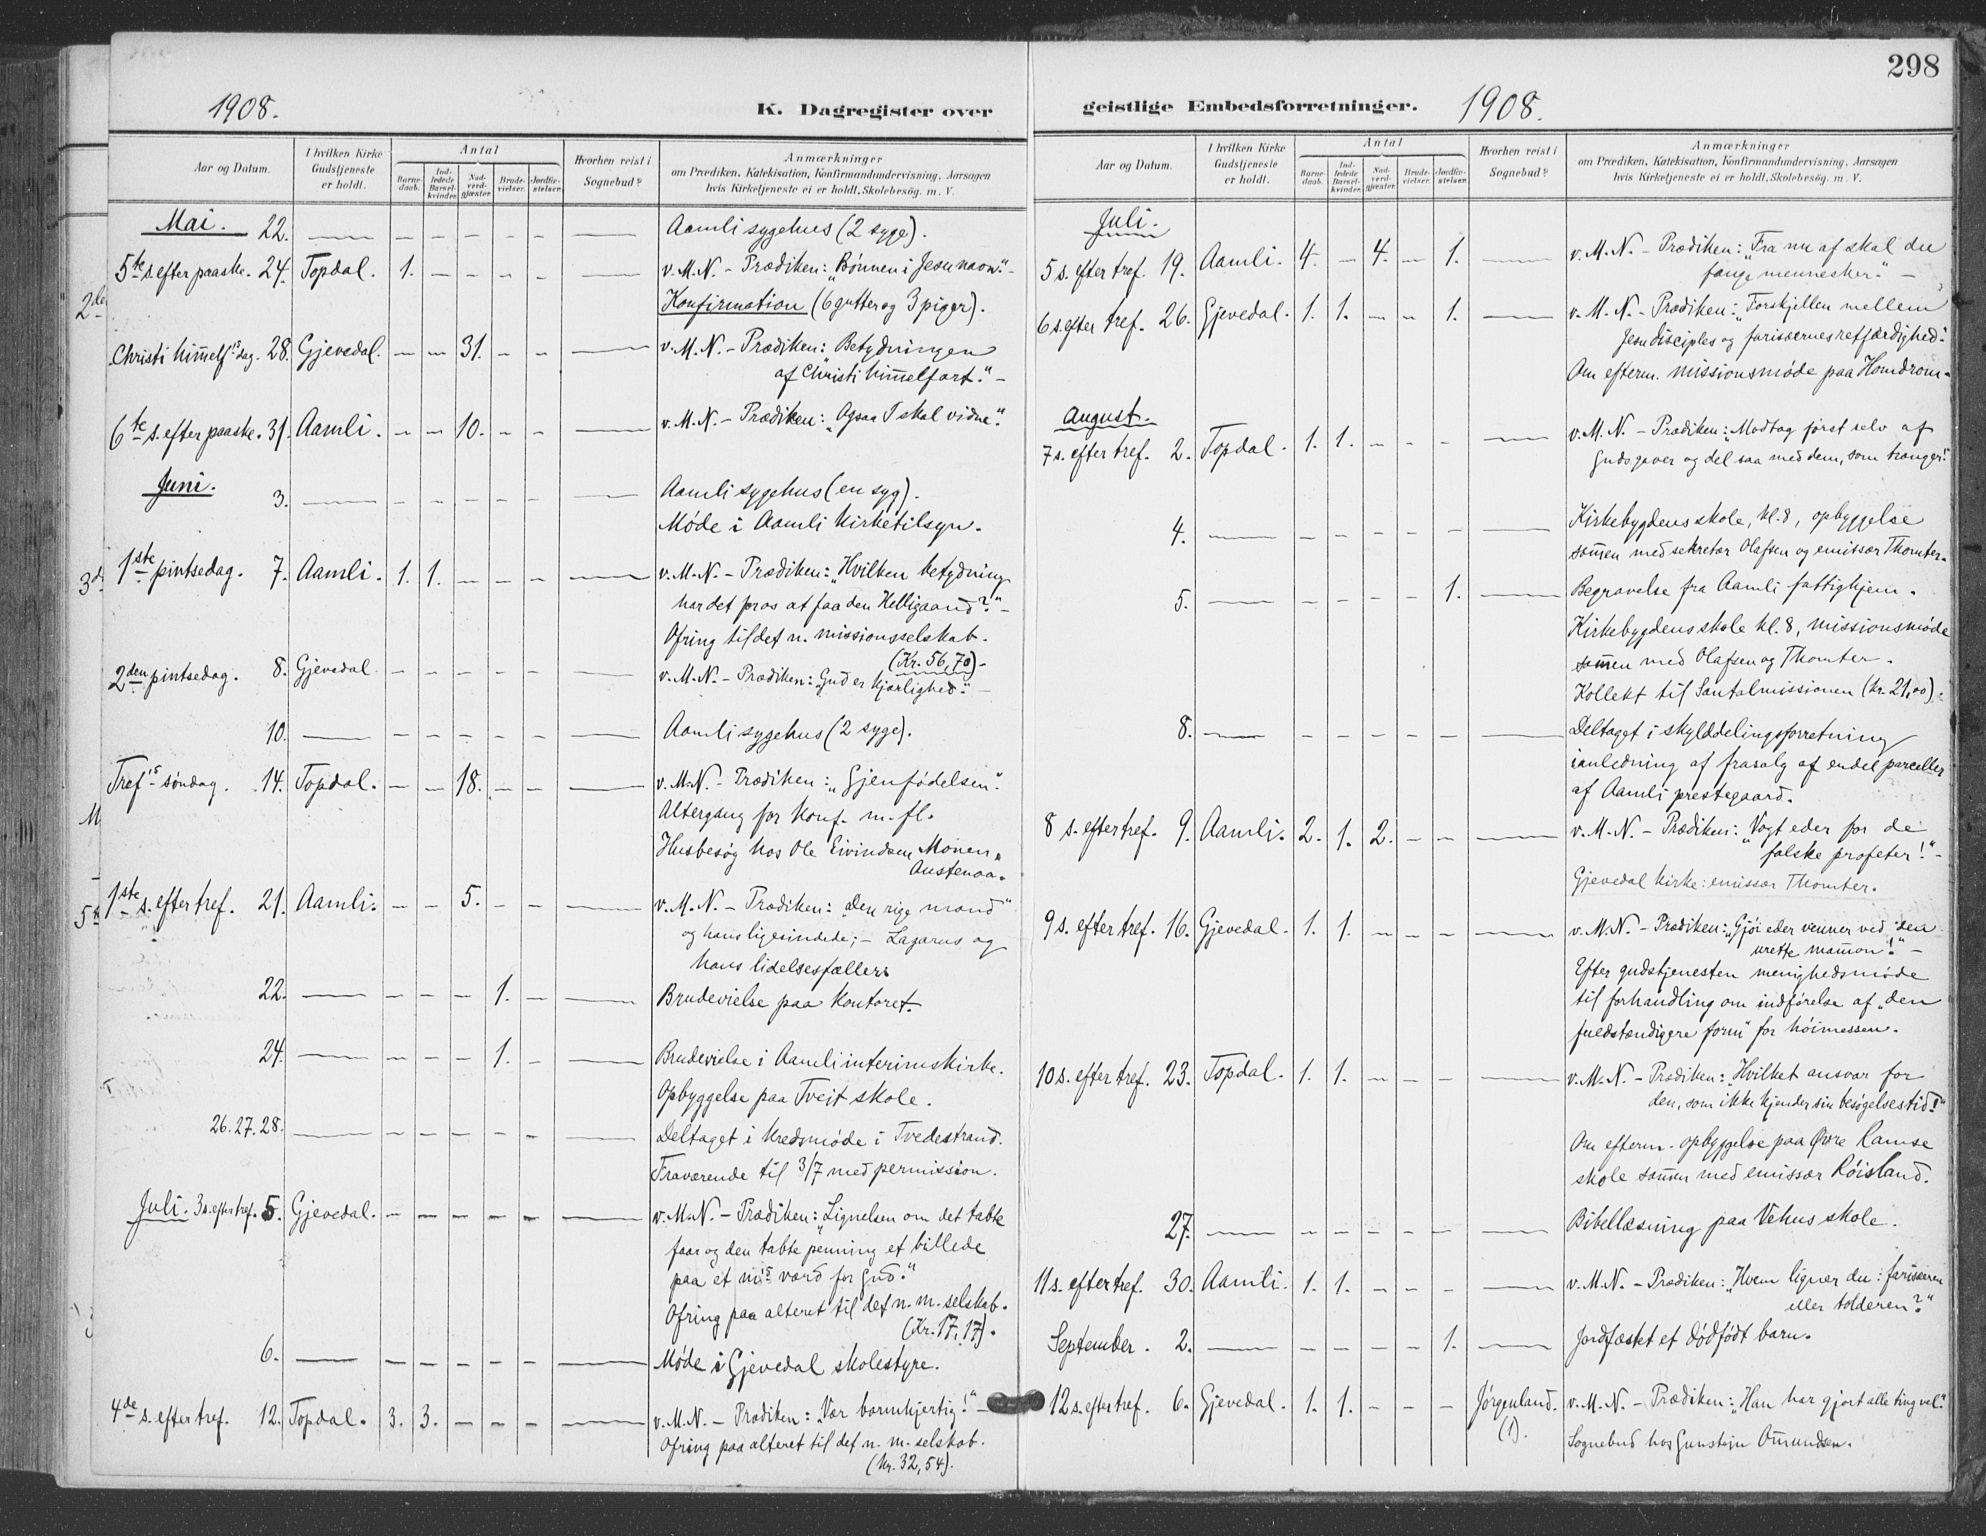 298
1908.
K. Dagregister over
geistlige Embedsforretninger.
1908.
Aar og Datum.
I hvilken Kirke Gudstjeneste er holdt.
Antal
Barnedaab.
Indledede Barselkvinder.
Nadverdgjæster.
Brudevielser.
Jordfæstelser.
Hvorhen reist i Sognebud?
Anmærkninger
om Prædiken, Katekisation, Konfirmandundervisning, Aarsagen
hvis Kirketjeneste ei er holdt, Skolebesøg. m. V.
Mai. 22. — — — — — — — Aamli sygehus (2 syge).
5te s. efter paaske. 24. Topdal. 1. — — — — — v. M. N. – Prædiken: „Bønnen i Jesu navn.“ –
Konfirmation (6 gutter og 3 piger).
Christi himmelfts dag. 28. Gjevedal. — — 31. — — — v. M. N. – Prædiken: „Betydningen
af Christi himmelfart.“ –
6te s. efter paaske. 31. Aamli. — — 10. — — — v. M. N. – Prædiken: „Ogsaa I skal vidne.“
Juni.
3. — — — — — — — Aamli sygehus (en syg).
Møde i Aamli kirketilsyn.
1ste pintsedag. 7. Aamli. 1. 1. — — — — v. M. N. – Prædiken: „Hvilken betydning
har det for os at faa den Helligaand?“ –
Ofring til det n. missionsselskab.
(Kr. 56,70) –
2den pintsedag. 8. Gjevedal. — — — — — — v. M. N. – Prædiken: „Gud er kjærlighed.“ –
10. — — — — — — — Aamli sygehus (2 syge).
Trefs søndag. 14. Topdal. — — 18. — — — v. M. N. – Prædiken: „Gjenfødelsen“.
Altergang for konf. m. fl.
Husbesøg hos Ole Eivindsen Monen,
Austenaa.
1ste s. efter tref. 21. Aamli. — — 5. — — — v. M. N. – Prædiken: „Den rige mand“
og hans ligesindede; – Lazarus og
hans lidelsesfæller.
22. — — — — 1. — — Brudevielse paa kontoret.
24. — — — — 1. — — Brudevielse i Aamli interimskirke.
Opbyggelse paa Tveit skole.
26. 27. 28. — — — — — — — Deltaget i kredsmøde i Tvedestrand.
Fraværende til 3/7 med permission.
Juli. 3 s. efter tref. 5. Gjevedal. — — — — — — v. M. N. – Prædiken: „Lignelsen om det tabte
faar og den tabte penning et billede
paa et ms værd for Gud.“
Ofring paa alteret til det n. m. selskab.
(Kr. 17,17).
6. — — — — — — — Møde i Gjevedal skolestyre.
4de s. efter tref. 12. Topdal. 3. 3. — — — — v. M. N. – Prædiken: „Vær barmhjertig!“ –
Ofring paa alteret til det n. m. selskab.
(Kr. 32,54).
Aar og Datum.
I hvilken Kirke Gudstjeneste er holdt.
Antal
Barnedaab.
Indledede Barselkvinder.
Nadverdgjæster.
Brudevielser.
Jordfæstelser.
Hvorhen reist i Sognebud?
Anmærkninger
om Prædiken, Katekisation, Konfirmandundervisning, Aarsagen
hvis Kirketjeneste ei er holdt, Skolebesøg. m. V.
Juli.
5 s. efter tref. 19. Aamli. 4. — 4. — 1. — v. M. N. – Prædiken: „Fra nu af skal du
fange mennesker.“ –
6 s. efter tref. 26. Gjevedal. 1. 1. — — 1. — v. M. N. – Prædiken: „Forskjellen mellem
Jesu disciples og farisæernes retfærdighed.“
Om efterm. missionsmøde paa Homdrom.
August.
7 s. efter tref. 2. Topdal. 1. 1. — — — — v. M. N. – Prædiken: „Modtag først selv af
Guds gaver og del saa med dem, som trænger!“
4. — — — — — — — Kirkebygdens skole, kl. 8, opbyggelse
sammen med sekretær Olafsen og emissær Thomter.
5. — — — — — 1. — Begravelse fra Aamli fattighjem.
Kirkebygdens skole kl. 8, missionsmøde
sammen med Olafsen og Thomter.
Kollekt til Santalmissionen (kr. 21,00).
8. — — — — — — — Deltaget i skylddelingsforretning
ianledning af frasalg af endel parceller
af Aamli prestegaard.
8 s. efter tref. 9. Aamli. 2. 1. 2. — — — v. M. N. – Prædiken: „Vogt eder for de
falske profeter!“ –
Gjevedal kirke: emissær Thomter.
9 s. efter tref. 16. Gjevedal. 1. 1. — — — — v. M. N. – Prædiken: „Gjør eder venner ved den
urette mammon!“ –
Efter gudstjenesten menighedsmøde
til forhandling om indførelse af „den
fuldstændigere form“ for høimessen.
10 s. efter tref. 23. Topdal. 1. 1. — — — — v. M. N. – Prædiken: „Hvilket ansvar for
den, som ikke kjender sin besøgelsestid!“
Om efterm. opbyggelse paa Øvre Ramse
skole sammen med emissær Røisland.
27. — — — — — — — Bibellæsning paa Vehus skole.
11 s. efter tref. 30. Aamli. 1. 1. — — — — v. M. N. – Prædiken: „Hvem ligner du: farisæeren
eller tolderen?“
September. 2. — — — — — 1. — Jordfæstet et dødfødt barn.
12 s. efter tref. 6. Gjevedal. 1. 1. — — — Jørgenland. (1). v. M. N. – Prædiken: „Han har gjort alle ting vel.“
Sognebud hos Gunstein Omundsen.